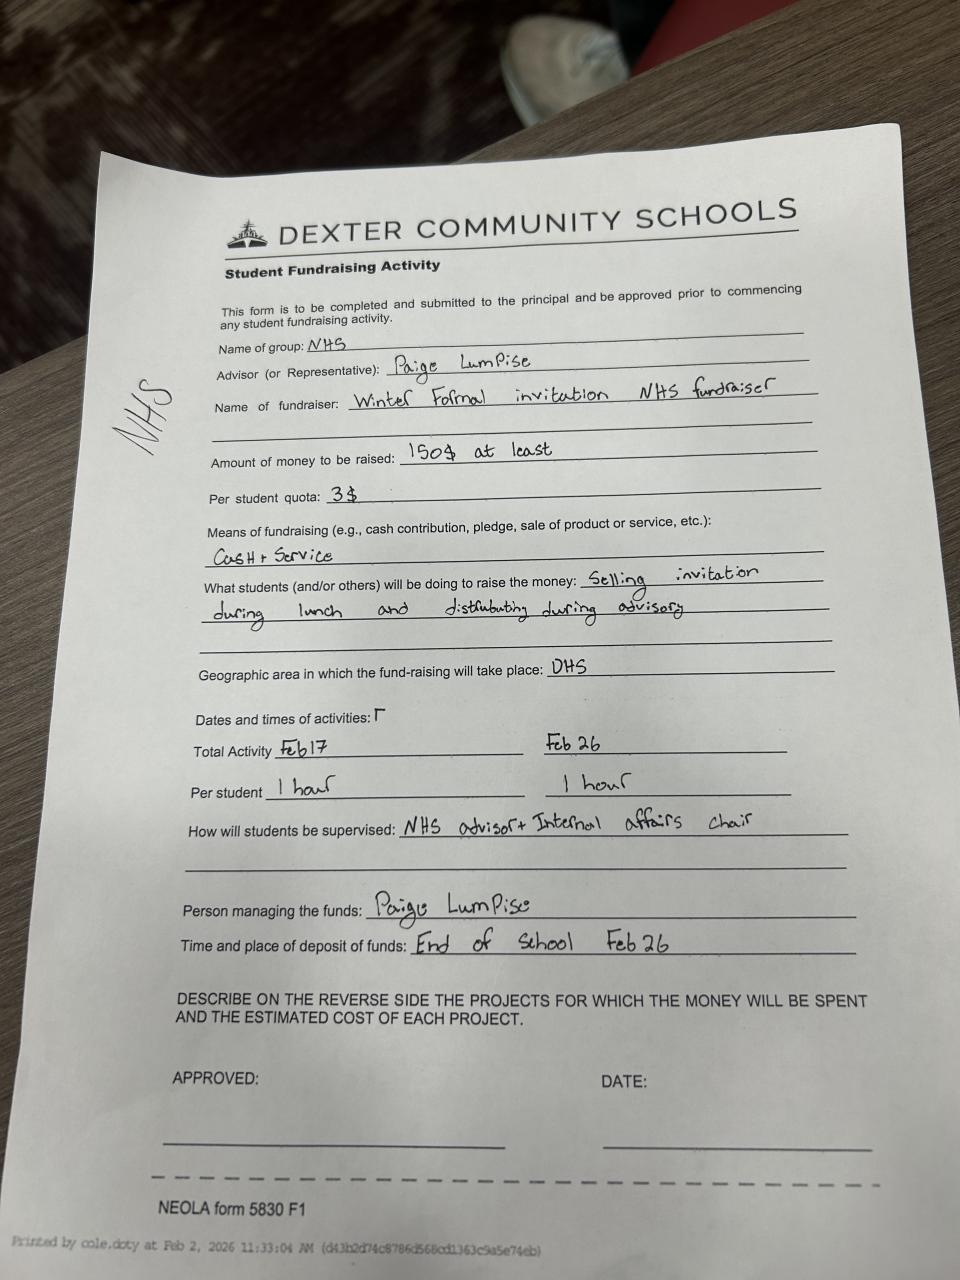 DEXTER COMMUNITY SCHOOLS
Student Fundraising Activity
This form is to be completed and submitted to the principal and be approved prior to commencing
any student fundraising activity.
Name of group: NHS
Advisor (or Representative): Paige LumPise
Name of fundraiser: Winter Formal invitation NHS fundraiser
NHS
Amount of money to be raised: 150$ at least
Per student quota: 3$
Means of fundraising (e.g., cash contribution, pledge, sale of product or service, etc.):
CasH + Service
What students (and/or others) will be doing to raise the money: Selling invitation
during lunch and distrubuting during advisory
Geographic area in which the fund-raising will take place: DHS
Dates and times of activities:
Total Activity Feb 17 Feb 26
Per student 1 hour 1 hour
How will students be supervised: NHS advisor + Internal affairs chair
Person managing the funds: Paige LumPise
Time and place of deposit of funds: End of school Feb 26
DESCRIBE ON THE REVERSE SIDE THE PROJECTS FOR WHICH THE MONEY WILL BE SPENT
AND THE ESTIMATED COST OF EACH PROJECT.
APPROVED: DATE:
NEOLA form 5830 F1
Printed by cole.doty at Feb 2, 2026 11:33:04 AM (d43b2d74c8786d568cd1363c9a5e74eb)